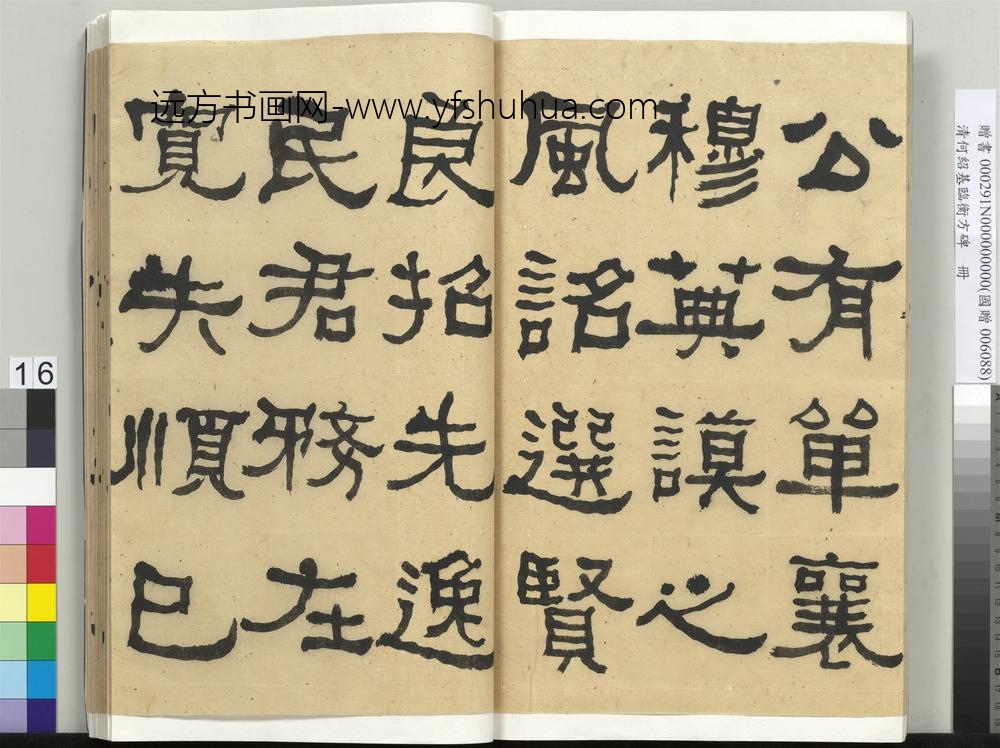 远方书画网-www.yfshuhua.com
公有單襄
穆典謨之
風詔選賢
良招先逸
民君務在
寬失順已
贈書 000291N000000000(國贈 006088)
清何紹基臨衡方碑 冊
16